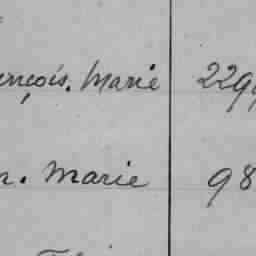 nçois. Marie 229
r. Marie 98